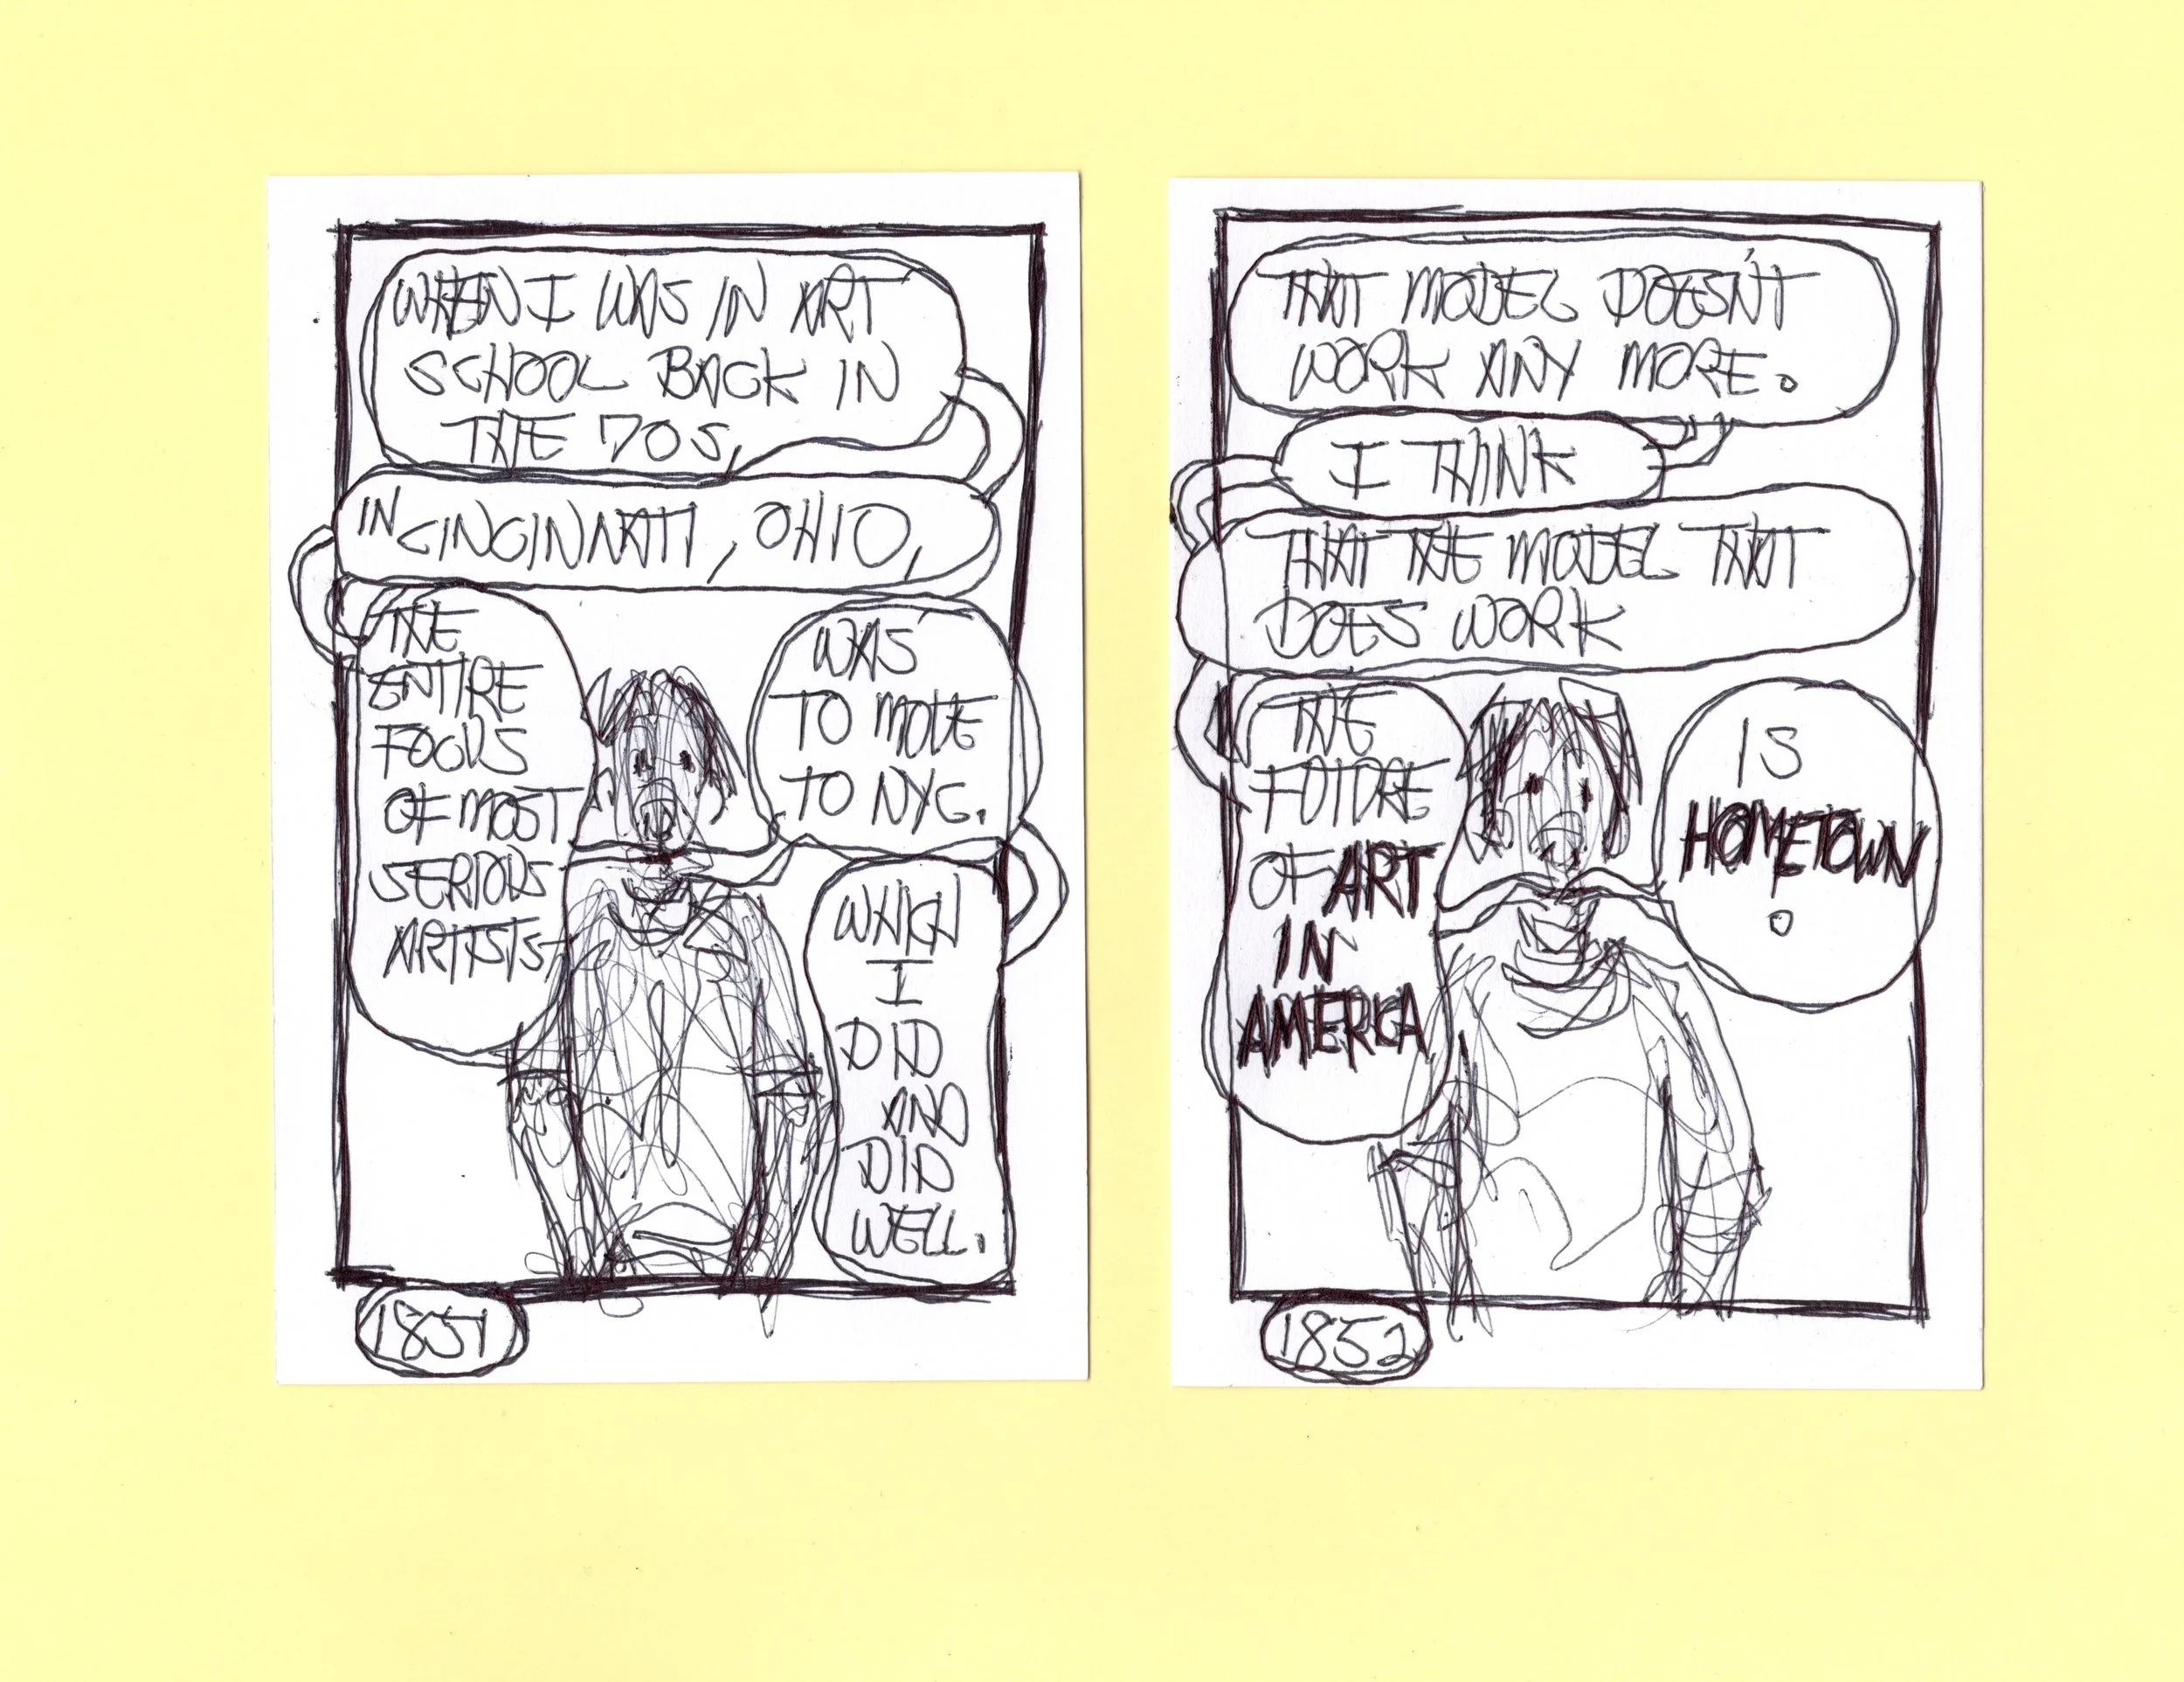 WHEN I WAS IN ART
SCHOOL BACK IN
THE 70S,
IN CINCINNATI, OHIO,
THE
ENTIRE
FOCUS
OF MOST
SERIOUS
ARTISTS,
WAS
TO MOVE
TO NYC.
WHICH
I
DID
AND
DID
WELL.
1851
THAT MODEL DOESN'T
WORK ANY MORE.
I THINK
THAT THE MODEL THAT
DOES WORK
THE
FUTURE
OF ART
IN
AMERICA
IS
HOMETOWN
.
1852